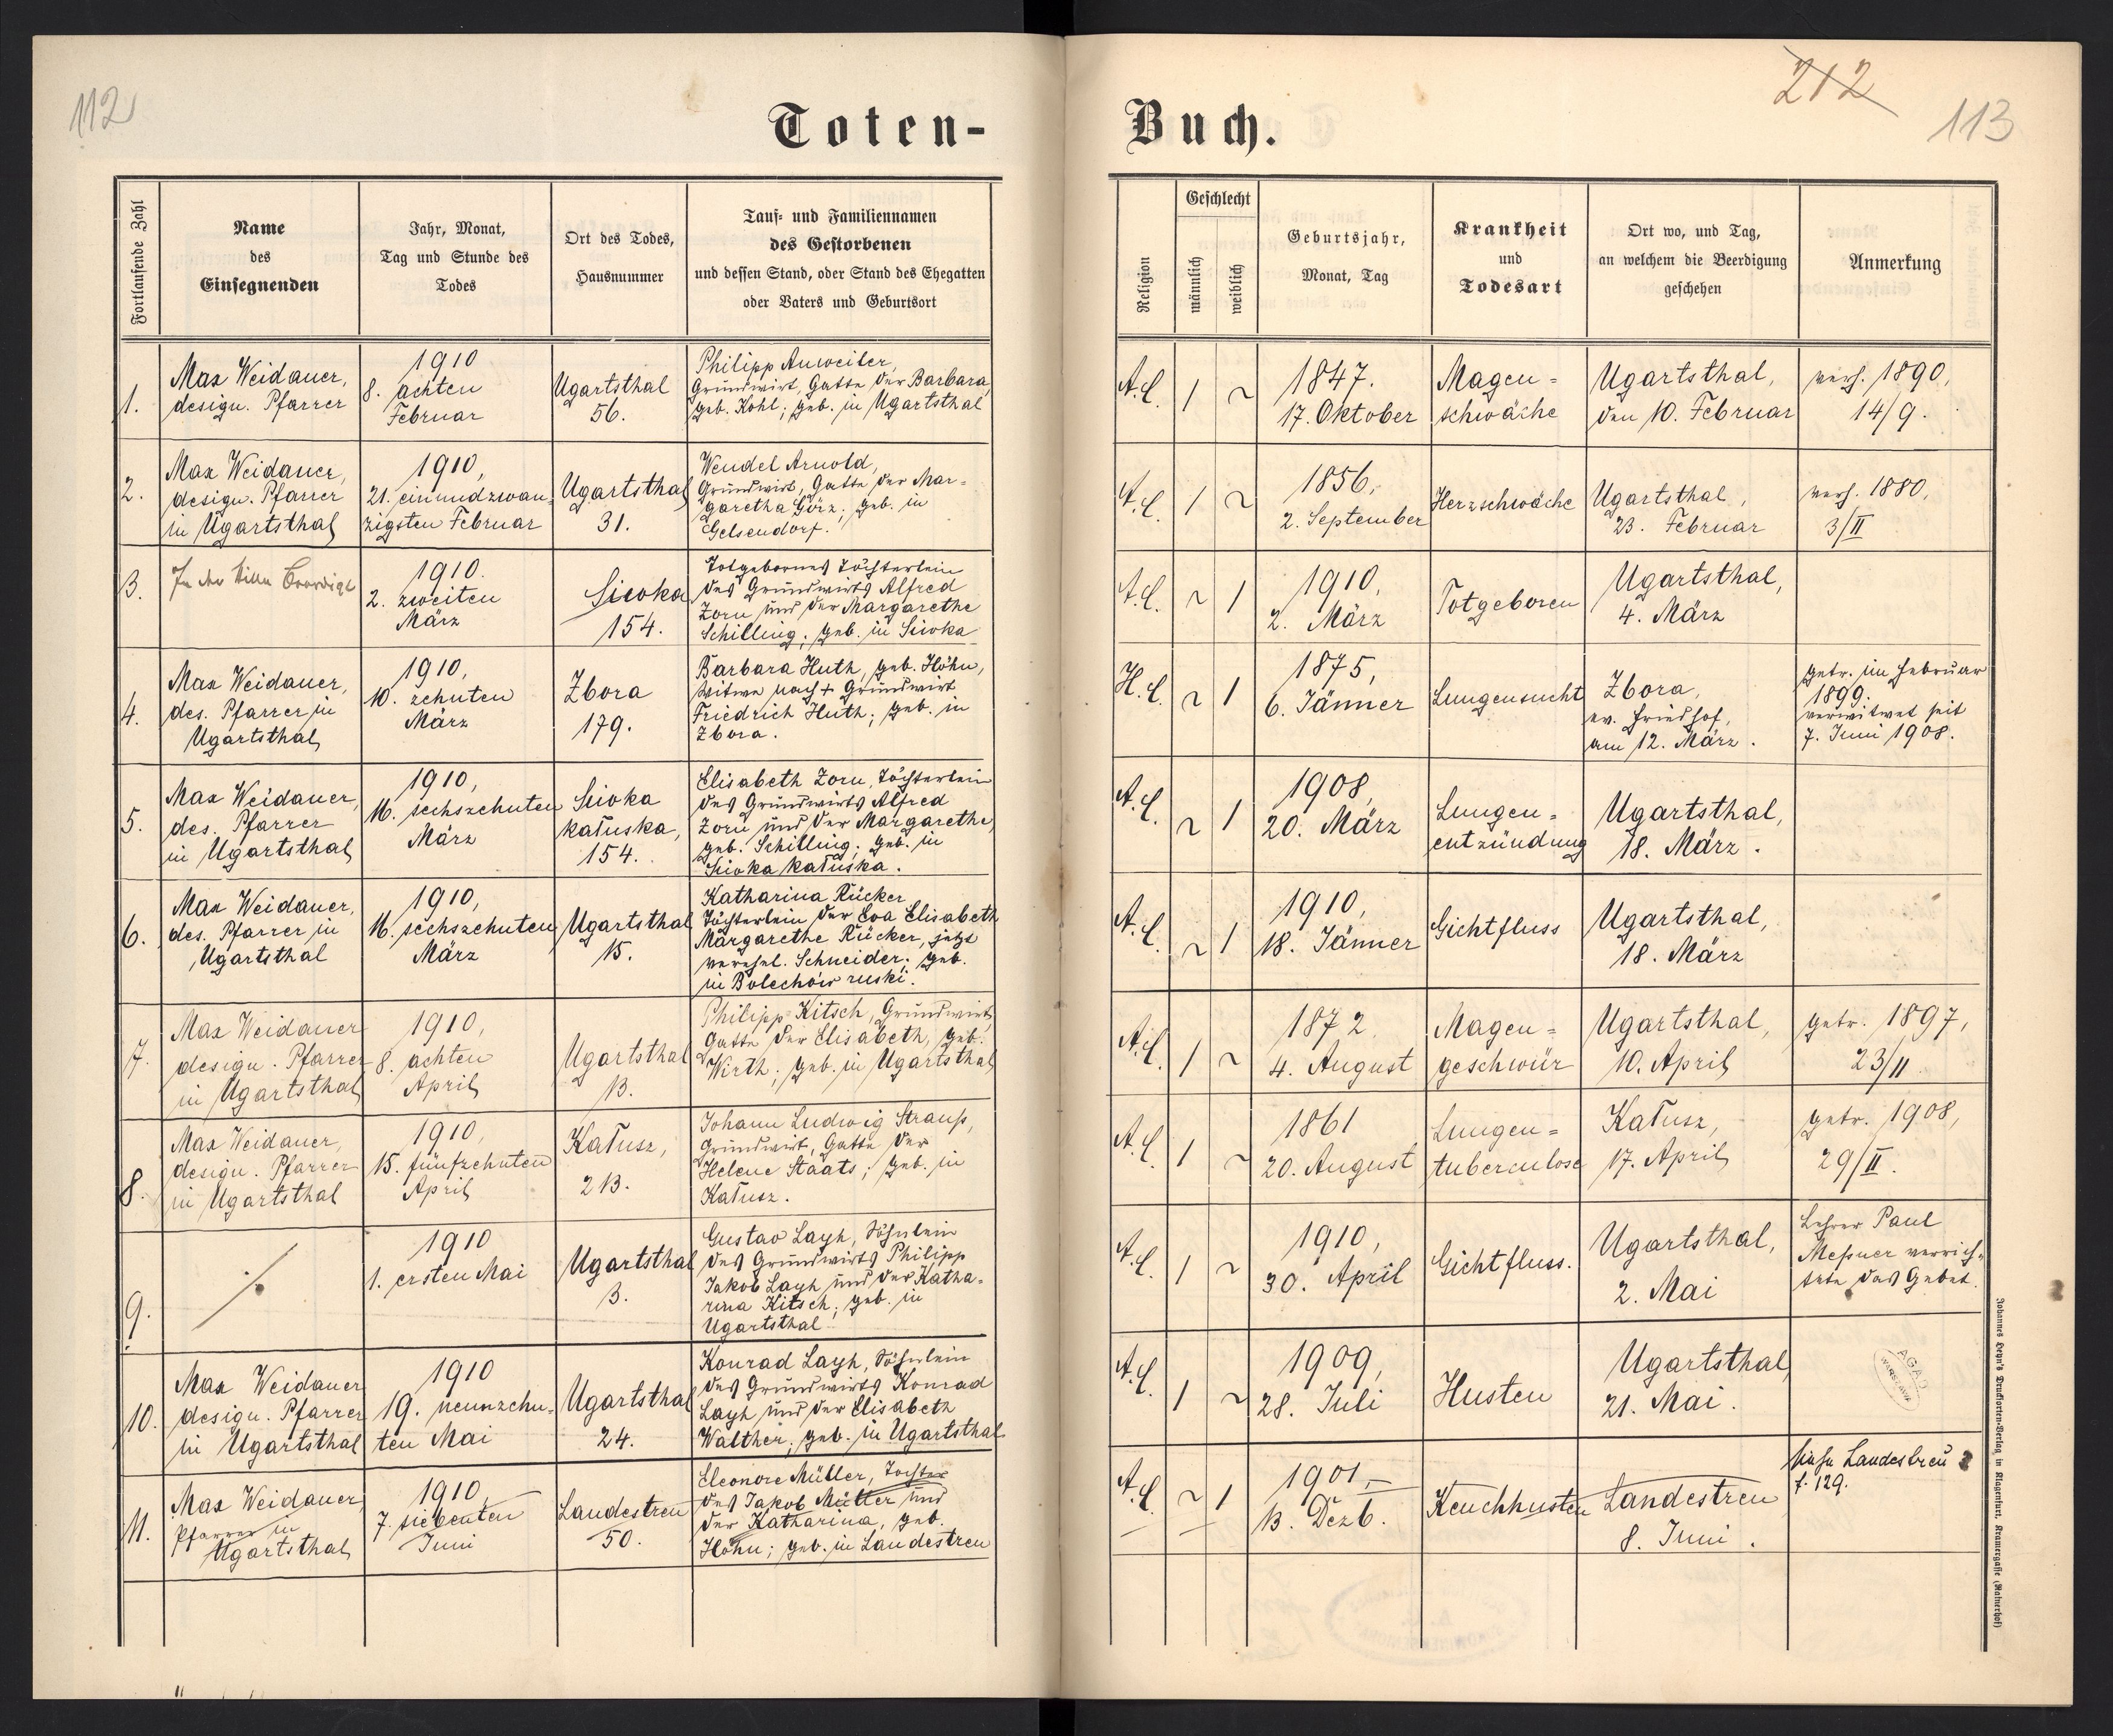 112
Toten-
Fortlaufende Zahl
Name
des
Einsegnenden
Jahr, Monat,
Tag und Stunde des
Todes
Ort des Todes,
Hausnummer
Tauf- und Familiennamen
des Gestorbenen
und dessen Stand, oder Stand des Ehegatten
oder Vaters und Geburtsort
1.
Max Weidauer,
design. Pfarrer
1910
8. achten
Februar
Ugartsthal
56.
Philipp Anweiler,
Grundwirt, Gatte der Barbara,
geb. Kohl; geb. in Ugartsthal
2.
Max Weidauer,
design. Pfarrer
in Ugartsthal
1910,
21. einundzwan-
zigsten Februar
Ugartsthal
31.
Wendel Arnold,
Grundwirt, Gatte der Mar-
garetha Görz; geb. in
Gelsendorf.
3.
In der Stille Beerdigt
1910.
2. zweiten
März
Siwka
154.
Totgebornes Töchterlein
des Grundwirts Alfred
Zorn und der Margarethe
Schilling; geb. in Siwka
4.
Max Weidauer,
des. Pfarrer in
Ugartsthal
1910,
10. zehnten
März
Zbora
179.
Barbara Huth, geb. Höhn,
Witwe nach + Grundwirt
Friedrich Huth; geb. in
Zbora.
5.
Max Weidauer,
des. Pfarrer
in Ugartsthal
1910,
16. sechszehnten
März
Siwka
kałuska,
154.
Elisabeth Zorn, Töchterlein
des Grundwirts Alfred
Zorn und der Margarethe,
geb. Schilling; geb. in
Siwka kałuska.
6.
Max Weidauer,
des. Pfarrer in
Ugartsthal
1910,
16. sechszehnten
März
Ugartsthal
15.
Katharina Rücker
Töchterlein der Eva Elisabeth
Margarethe Rücker, jetzt
verehel. Schneider; geb.
in Bolechów ruski.
7.
Max Weidauer
design. Pfarrer
in Ugartsthal
1910,
8. achten
April
Ugartsthal
13.
Philipp Kitsch, Grundwirt,
Gatte der Elisabeth, geb.
Wirth; geb. in Ugartsthal
8.
Max Weidauer,
design. Pfarrer
in Ugartsthal
1910,
15. fünfzehnten
April
Kałusz,
213.
Johann Ludwig Strauß,
Grundwirt, Gatte der
Helene Staats; geb. in
Kałusz.
9.
1910
1. ersten Mai
Ugartsthal
3.
Gustav Layh, Söhnlein
des Grundwirts Philipp
Jakob Layh und der Katha-
rina Kitsch; geb. in
Ugartsthal
10.
Max Weidauer
design. Pfarrer
in Ugartsthal
1910
19. neunzehn-
ten Mai
Ugartsthal
24.
Konrad Layh, Söhnlein
des Grundwirts Konrad
Layh und der Elisabeth
Walther; geb. in Ugartsthal
11.
Max Weidauer
Pfarrer in
Ugartsthal
1910,
7. siebenten
Juni
Landestreu
50.
Eleonore Müller, Tochter
des Jakob Müller und
der Katharina, geb.
Höhn; geb. in Landestreu
212
113
Buch.
Religion
Geschlecht
männlich
weiblich
Geburtsjahr,
Monat, Tag
Krankheit
und
Todesart
Ort wo, und Tag,
an welchem die Beerdigung
geschehen
Anmerkung
A.C.
1
1847.
17. Oktober
Magen-
schwäche
Ugartsthal,
den 10. Februar
1890,
14/9.
A.C.
1
1856,
2. September
Herzschwäche
Ugartsthal,
23. Februar
1880,
3/II
A.C.
1
1910,
2. März
Totgeboren
Ugartsthal,
4. März
H.C.
1
1875,
6. Jänner
Lungensucht
Zbora,
ev. Friedhof,
am 12. März.
getr. im Februar
1899.
verwitwet seit
7. Juni 1908.
A.C.
1
1908,
20. März
Lungen-
entzündung
Ugartsthal,
18. März.
A.C.
1
1910,
18. Jänner
Gichtfluss
Ugartsthal,
18. März
A.C.
1
1872
4. August
Magen-
geschwür
Ugartsthal,
10. April
getr. 1897,
23/11
A.C.
1
1861
20. August
Lungen-
tuberculose
Kałusz,
17. April
getr. 1908,
29/II.
A.C.
1
1910,
30. April
Gichtfluss.
Ugartsthal,
2. Mai
Lehrer Paul
Meßner verrich-
tete das Gebet.
A.C.
1
1909,
28. Juli
Husten
Ugartsthal,
21. Mai.
AGAD
WARSZAWA
A.C.
1
1901,
13. Dezb.
Keuchhusten
Landestreu
8. Juni.
siehe Landestreu
f. 129.
Johannes Heyn's Drucksorten-Verlag in Klagenfurt, Kramergasse (Rainerhof)